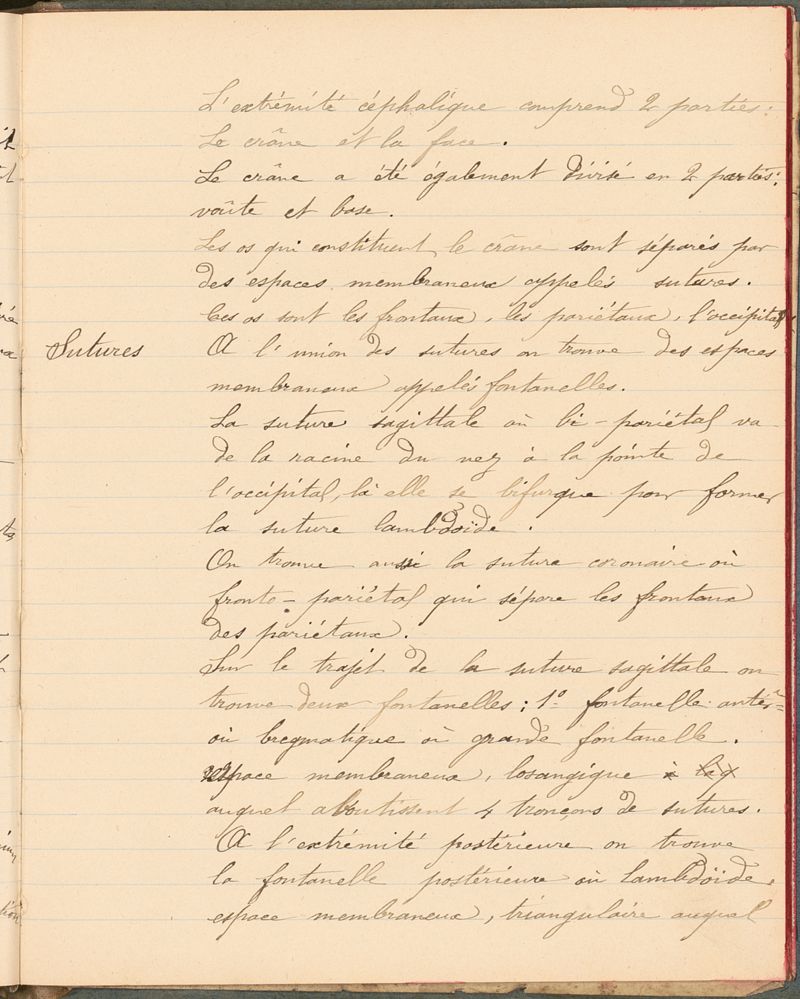 L'extrémité céphalique comprend 2 parties :
Le crâne et la face.
Le crâne a été également divisé en 2 parties :
voûte et base.
Les os qui constituent le crâne sont séparés par
des espaces membraneux appelés sutures.
Ces os sont les frontaux, les pariétaux, l'occipital
Sutures
A l'union des sutures on trouve des espaces
membraneux appelés fontanelles.
La suture sagittale où bi-pariétal va
de la racine du nez à la pointe de
l'occipital, là elle se bifurque pour former
la suture lambdoïde.
On trouve aussi la suture coronaire où
fronto-pariétal qui sépare les frontaux
des pariétaux.
Sur le trajet de la suture sagittale on
trouve deux fontanelles : 1º fontanelle antér=
où bregmatique où grande fontanelle.
espace membraneux, losangique à laq
auquel aboutissent 4 tronçons de sutures.
A l'extrémité postérieure on trouve
la fontanelle postérieure où lambdoïde,
espace membraneux, triangulaire auquel